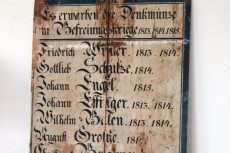 Es erwarben die Denkmünze
im Befreiungskriege 1813.1814.1815.
Friedrich 1813. 1814.
Gottlieb Schulze. 1814.
Johann Engel. 1815.
Johann Effinger. 1813. 1814.
Wilhelm 1813. 1814.
August Grothe. 181